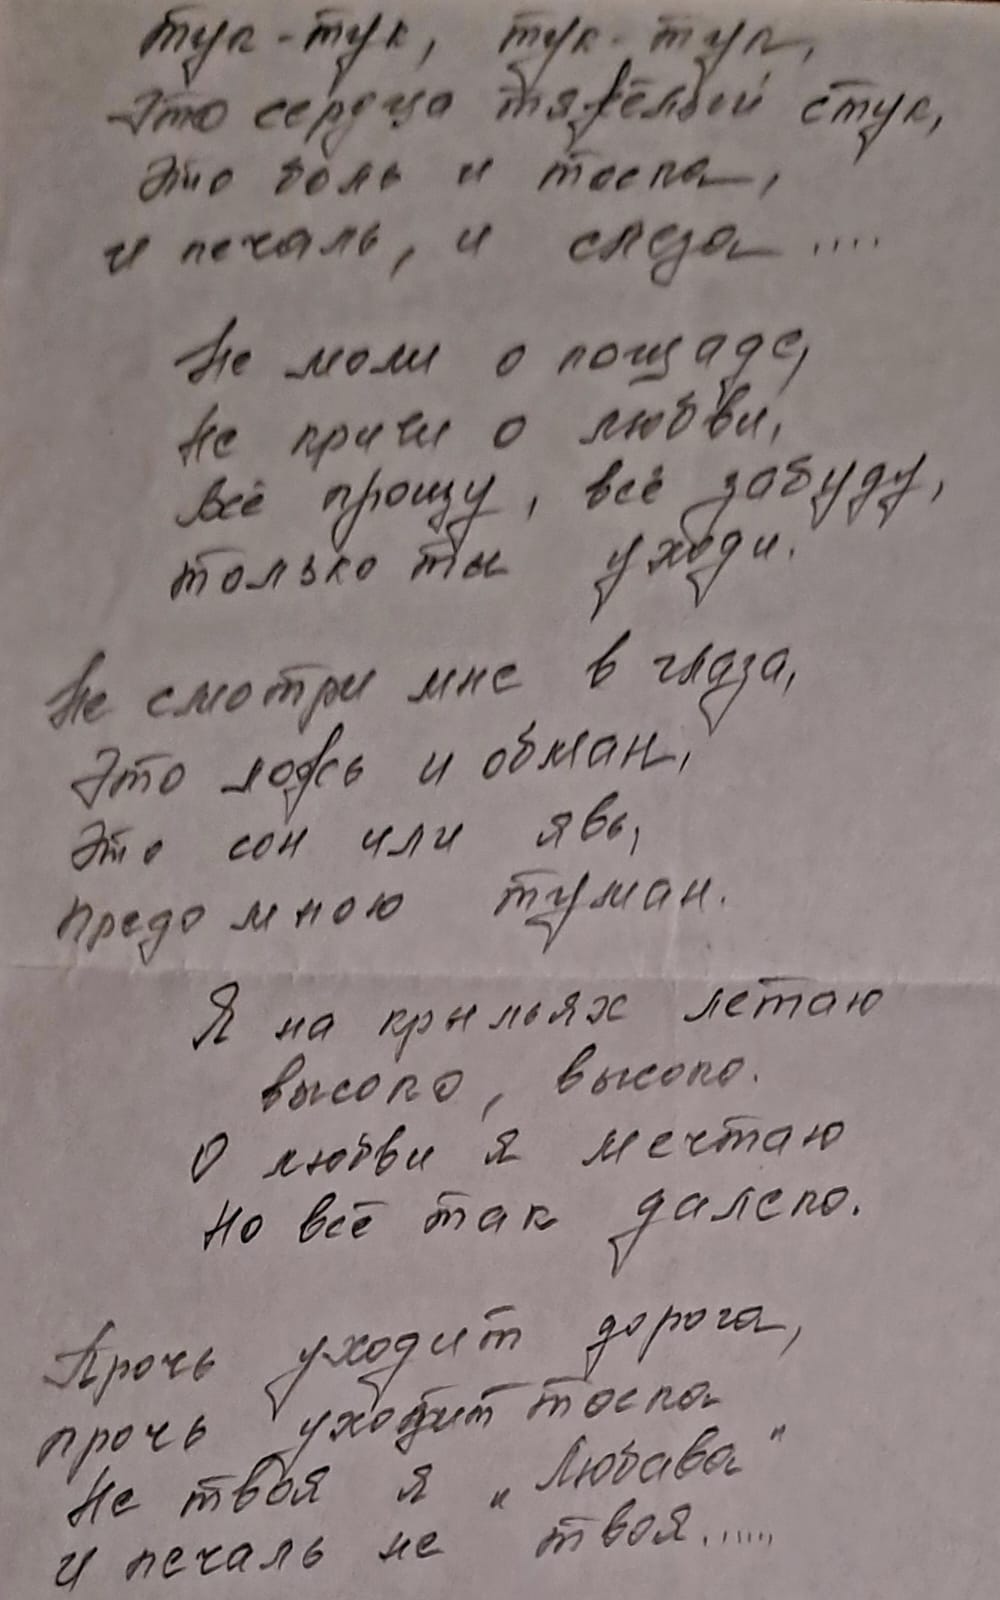 тук-тук, тук-тук,
Это сердца тяжёлый стук,
Это боль и тоска,
и печаль, и слеза ....
Не моли о пощаде,
Не кричи о любви,
Всё прощу, всё забуду,
только ты уходи.
Не смотри мне в глаза,
Это ложь и обман,
Это сон или явь,
предо мною туман.
Я на крыльях летаю
высоко, высоко.
О любви я мечтаю
Но всё так далеко.
Прочь уходит дорога,
прочь уходит тоска
Не твоя я „Любава"
и печаль не твоя.....